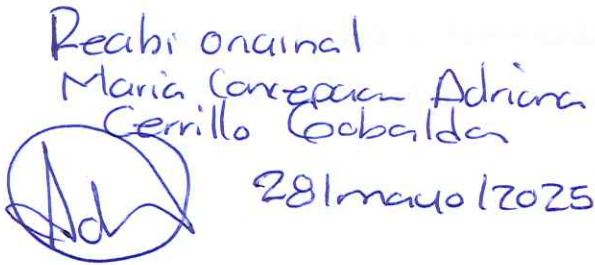 Recibi original
Maria Concepcion Adriana
Cerrillo Gabaldon
28/mayo/2025
Ad